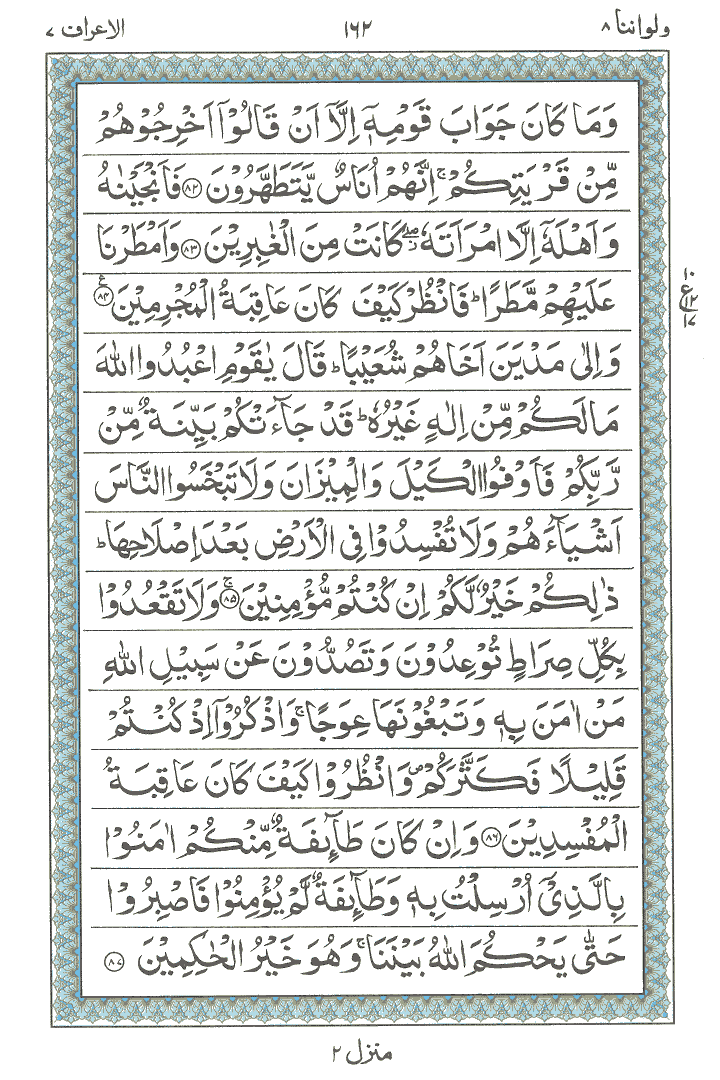 ولواننا ٨ ١٦٢ الاعراف ٧
وَمَا كَانَ جَوَابَ قَوْمِهٖۤ اِلَّاۤ اَنْ قَالُوْۤا اَخْرِجُوْهُمْ
مِّنْ قَرْيَتِكُمْ ۚ اِنَّهُمْ اُنَاسٌ يَّتَطَهَّرُوْنَ ﴿٨٢﴾ فَاَنْجَيْنٰهُ
وَاَهْلَهٗۤ اِلَّا امْرَاَتَهٗ ۖ كَانَتْ مِنَ الْغٰبِرِيْنَ ﴿٨٣﴾ وَاَمْطَرْنَا
عَلَيْهِمْ مَّطَرًا ؕ فَانْظُرْ كَيْفَ كَانَ عَاقِبَةُ الْمُجْرِمِيْنَ ﴿٨٤﴾ ع
١٠
ع
١٢
١٧
وَاِلٰى مَدْيَنَ اَخَاهُمْ شُعَيْبًا ؕ قَالَ يٰقَوْمِ اعْبُدُوا اللّٰهَ
مَا لَكُمْ مِّنْ اِلٰهٍ غَيْرُهٗ ؕ قَدْ جَآءَتْكُمْ بَيِّنَةٌ مِّنْ
رَّبِّكُمْ فَاَوْفُوا الْكَيْلَ وَالْمِيْزَانَ وَلَا تَبْخَسُوا النَّاسَ
اَشْيَآءَهُمْ وَلَا تُفْسِدُوْا فِى الْاَرْضِ بَعْدَ اِصْلَاحِهَا ؕ
ذٰلِكُمْ خَيْرٌ لَّكُمْ اِنْ كُنْتُمْ مُّؤْمِنِيْنَ ۚ ﴿٨٥﴾ وَلَا تَقْعُدُوْا
بِكُلِّ صِرَاطٍ تُوْعِدُوْنَ وَتَصُدُّوْنَ عَنْ سَبِيْلِ اللّٰهِ
مَنْ اٰمَنَ بِهٖ وَتَبْغُوْنَهَا عِوَجًا ۚ وَاذْكُرُوْۤا اِذْ كُنْتُمْ
قَلِيْلًا فَكَثَّرَكُمْ ۪ وَانْظُرُوْا كَيْفَ كَانَ عَاقِبَةُ
الْمُفْسِدِيْنَ ﴿٨٦﴾ وَاِنْ كَانَ طَآئِفَةٌ مِّنْكُمْ اٰمَنُوْا
بِالَّذِىْۤ اُرْسِلْتُ بِهٖ وَطَآئِفَةٌ لَّمْ يُؤْمِنُوْا فَاصْبِرُوْا
حَتّٰى يَحْكُمَ اللّٰهُ بَيْنَنَا ۚ وَهُوَ خَيْرُ الْحٰكِمِيْنَ ﴿٨٧﴾
منزل ٢